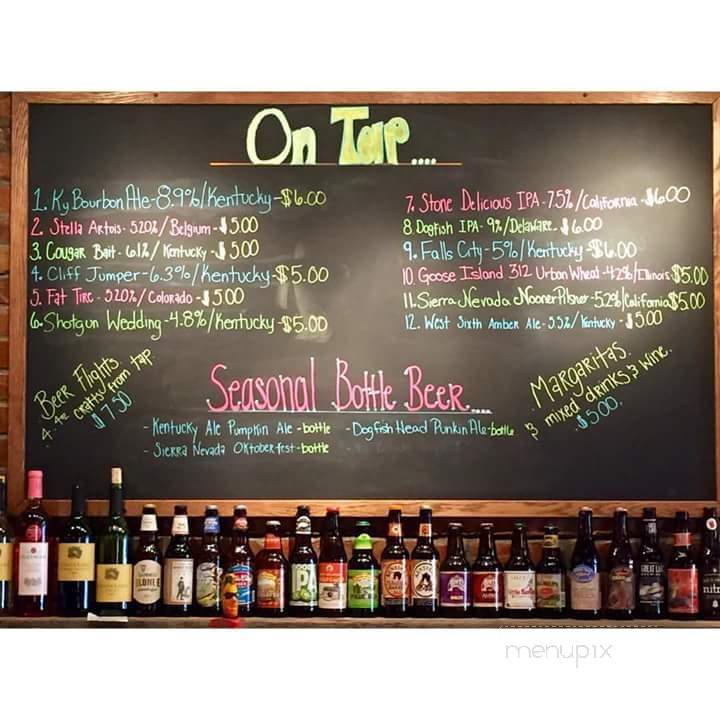 On Tap....
1. Ky Bourbon Ale - 8.9%/Kentucky - $6.00
2. Stella Artois - 5.20%/Belgium - $5.00
3. Cougar Bait - 6.1%/Kentucky - $5.00
4. Cliff Jumper - 6.3%/Kentucky - $5.00
5. Fat Tire - 5.20%/Colorado - $5.00
6. Shotgun Wedding - 4.8%/Kentucky - $5.00
7. Stone Delicious IPA - 7.5%/California - $6.00
8. Dogfish IPA - 9%/Delaware - $6.00
9. Falls City - 5%/Kentucky - $6.00
10. Goose Island 312 Urban Wheat - 4.2%/Illinois $5.00
11. Sierra Nevada Nooner Pilsner - 5.2%/California $5.00
12. West Sixth Amber Ale - 5.5%/Kentucky - $5.00
Beer Flights
4 - 4oz crafts from tap
$7.50
Seasonal Bottle Beer....
- Kentucky Ale Pumpkin Ale - bottle
- Sierra Nevada Oktoberfest - bottle
- Dogfish Head Punkin Ale - bottle
Margaritas,
mixed drinks, & wine.
$5.00
IPA
nitr
menupix